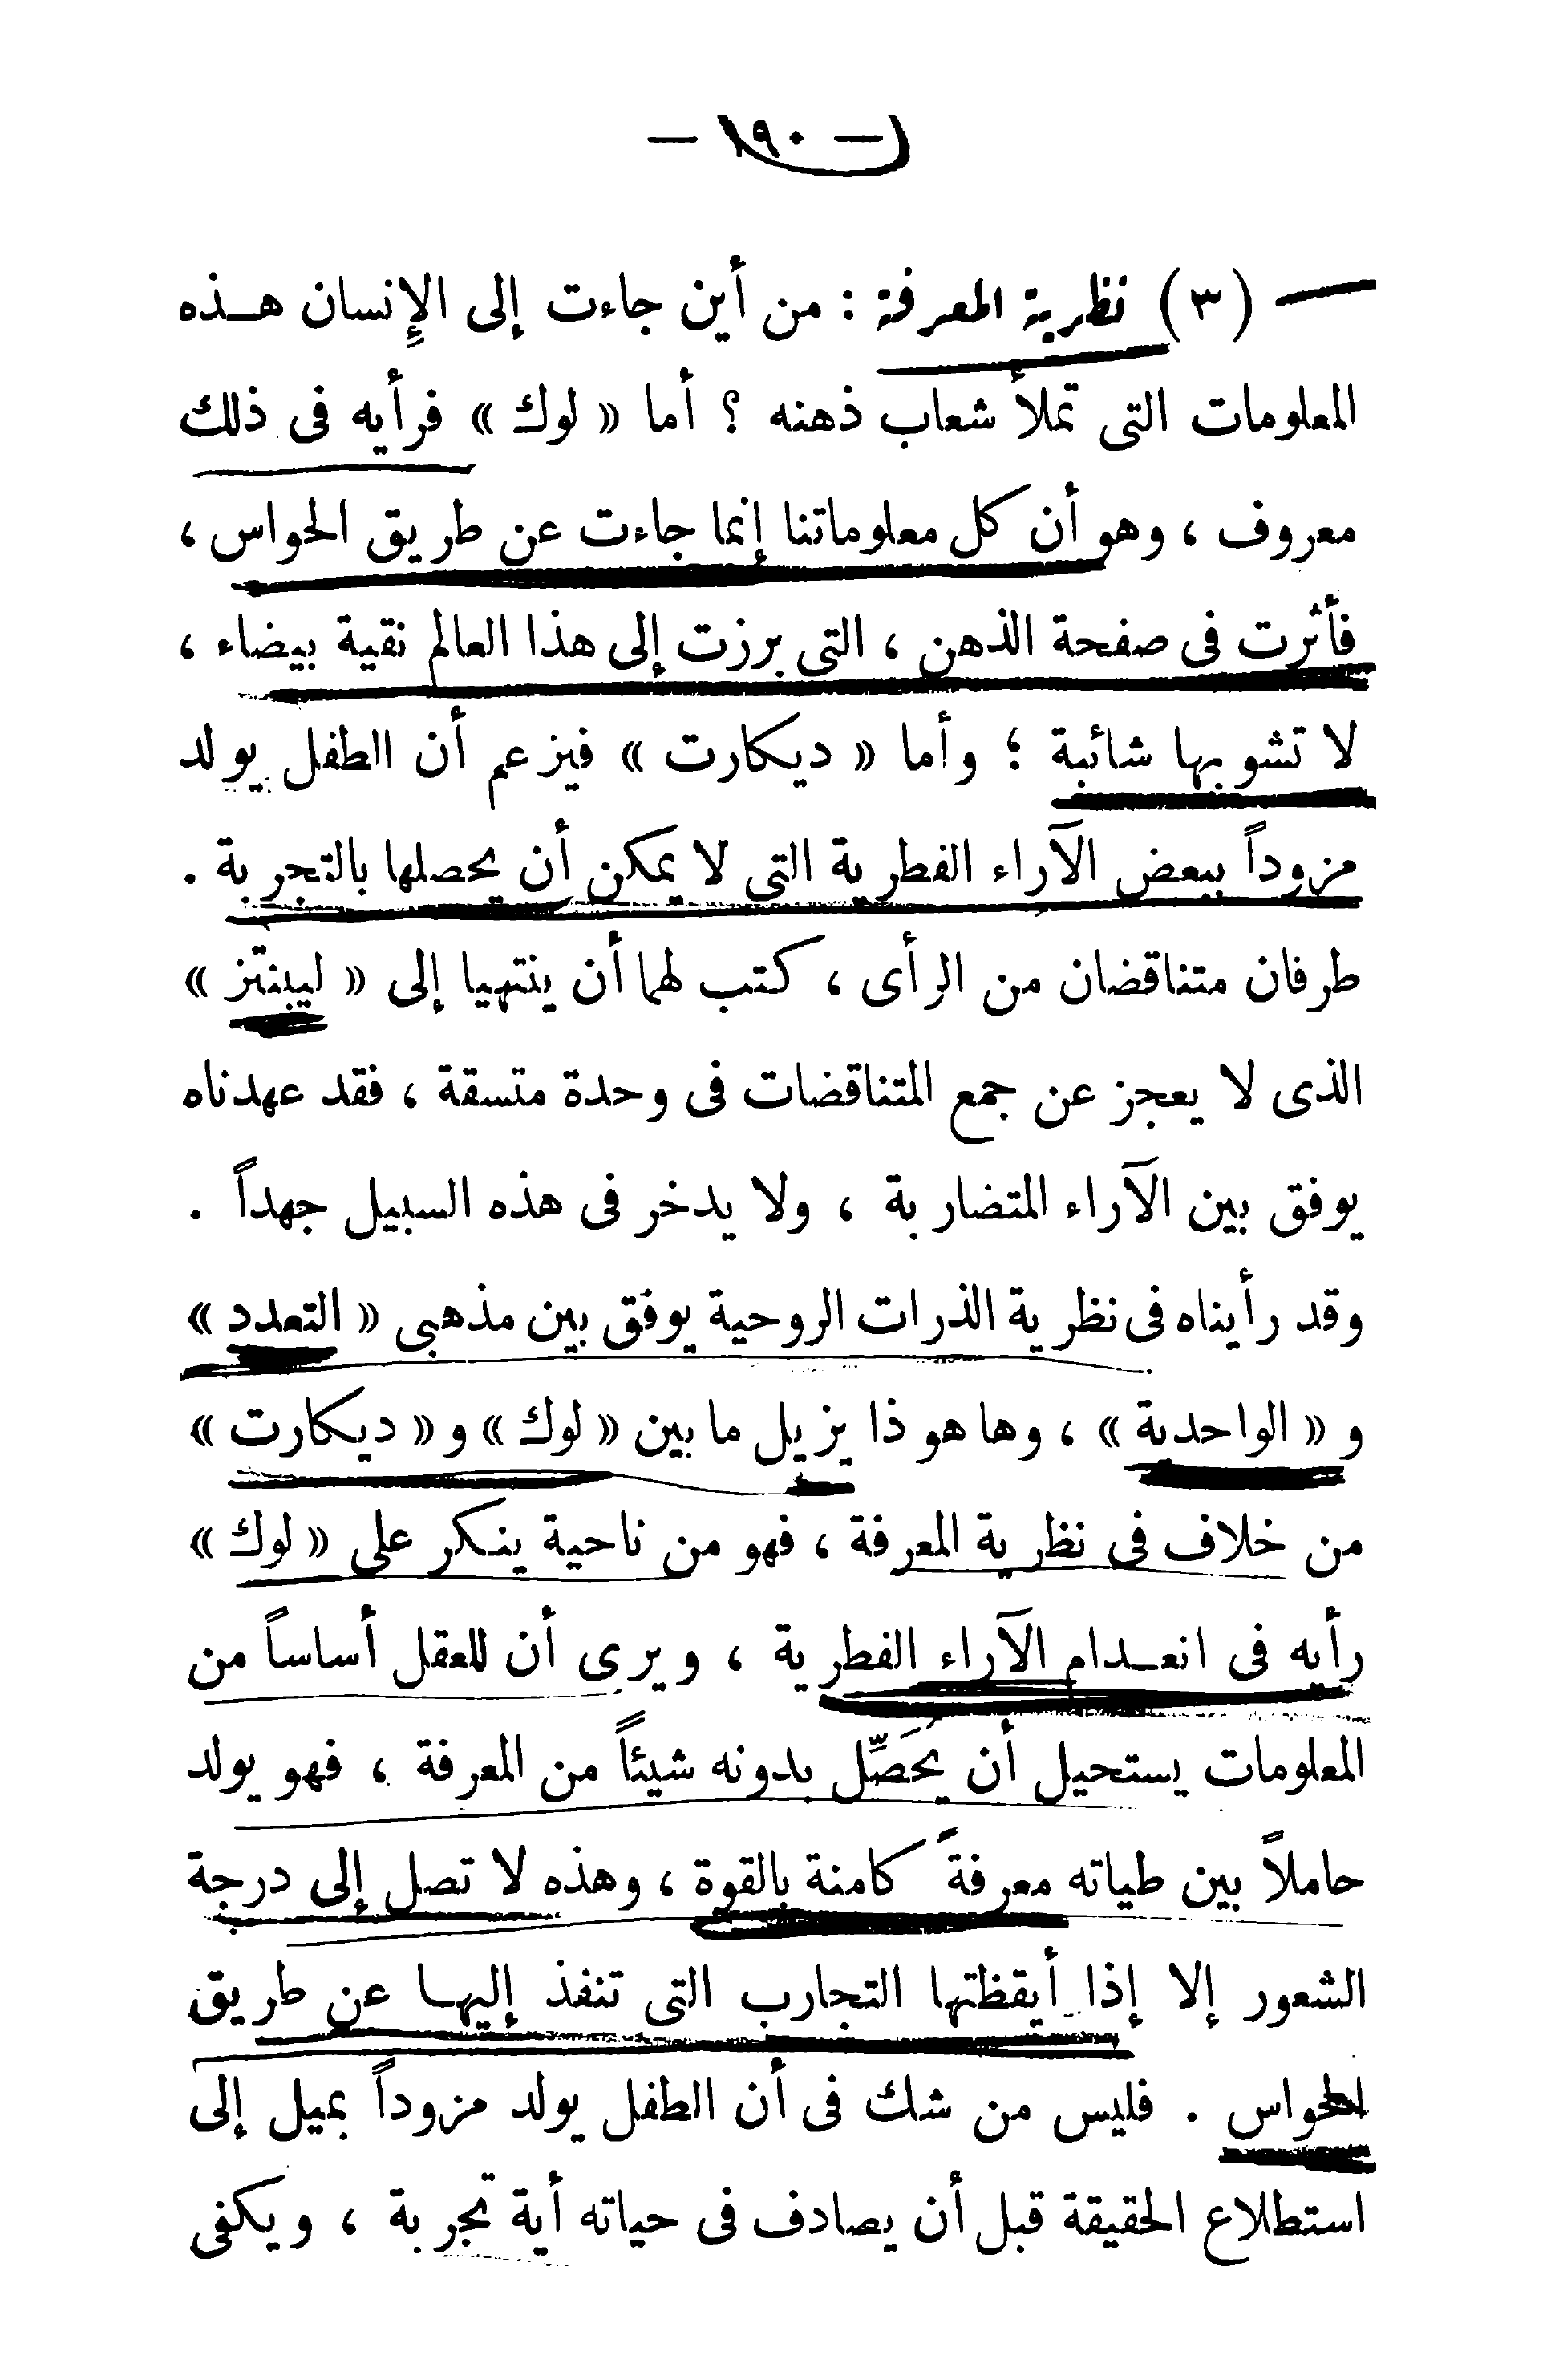 — ١٩٠ —
(٣) نظرية المعرفة : من أين جاءت إلى الإنسان هـذه
المعلومات التى تملأ شعاب ذهنه ؟ أما « لوك » فرأيه فى ذلك
معروف ، وهو أن كل معلوماتنا إنما جاءت عن طريق الحواس ،
فأثرت فى صفحة الذهن ، التى برزت إلى هذا العالم نقية بيضاء ،
لا تشوبها شائبة ؛ وأما « ديكارت » فيزعم أن الطفل يولد
مزوداً ببعض الآراء الفطرية التى لا يمكن أن يحصلها بالتجربة .
طرفان متناقضان من الرأى ، كتب لهما أن ينتهيا إلى « ليبنتز »
الذى لا يعجز عن جمع المتناقضات فى وحدة متسقة ، فقد عهدناه
يوفق بين الآراء المتضاربة ، ولا يدخر فى هذه السبيل جهداً .
وقد رأيناه فى نظرية الذرات الروحية يوفق بين مذهبى « التعدد »
و « الواحدية » ، وها هو ذا يزيل ما بين « لوك » و « ديكارت »
من خلاف فى نظرية المعرفة ، فهو من ناحية ينكر على « لوك »
رأيه فى انعـدام الآراء الفطرية ، ويرى أن للعقل أساساً من
المعلومات يستحيل أن يُحَصِّل بدونه شيئاً من المعرفة ، فهو يولد
حاملاً بين طياته معرفةً كامنة بالقوة ، وهذه لا تصل إلى درجة
الشعور إلا إذا أيقظتها التجارب التى تنفذ إليهـا عن طريق
الحواس . فليس من شك فى أن الطفل يولد مزوداً بميل إلى
استطلاع الحقيقة قبل أن يصادف فى حياته أية تجربة ، ويكفى